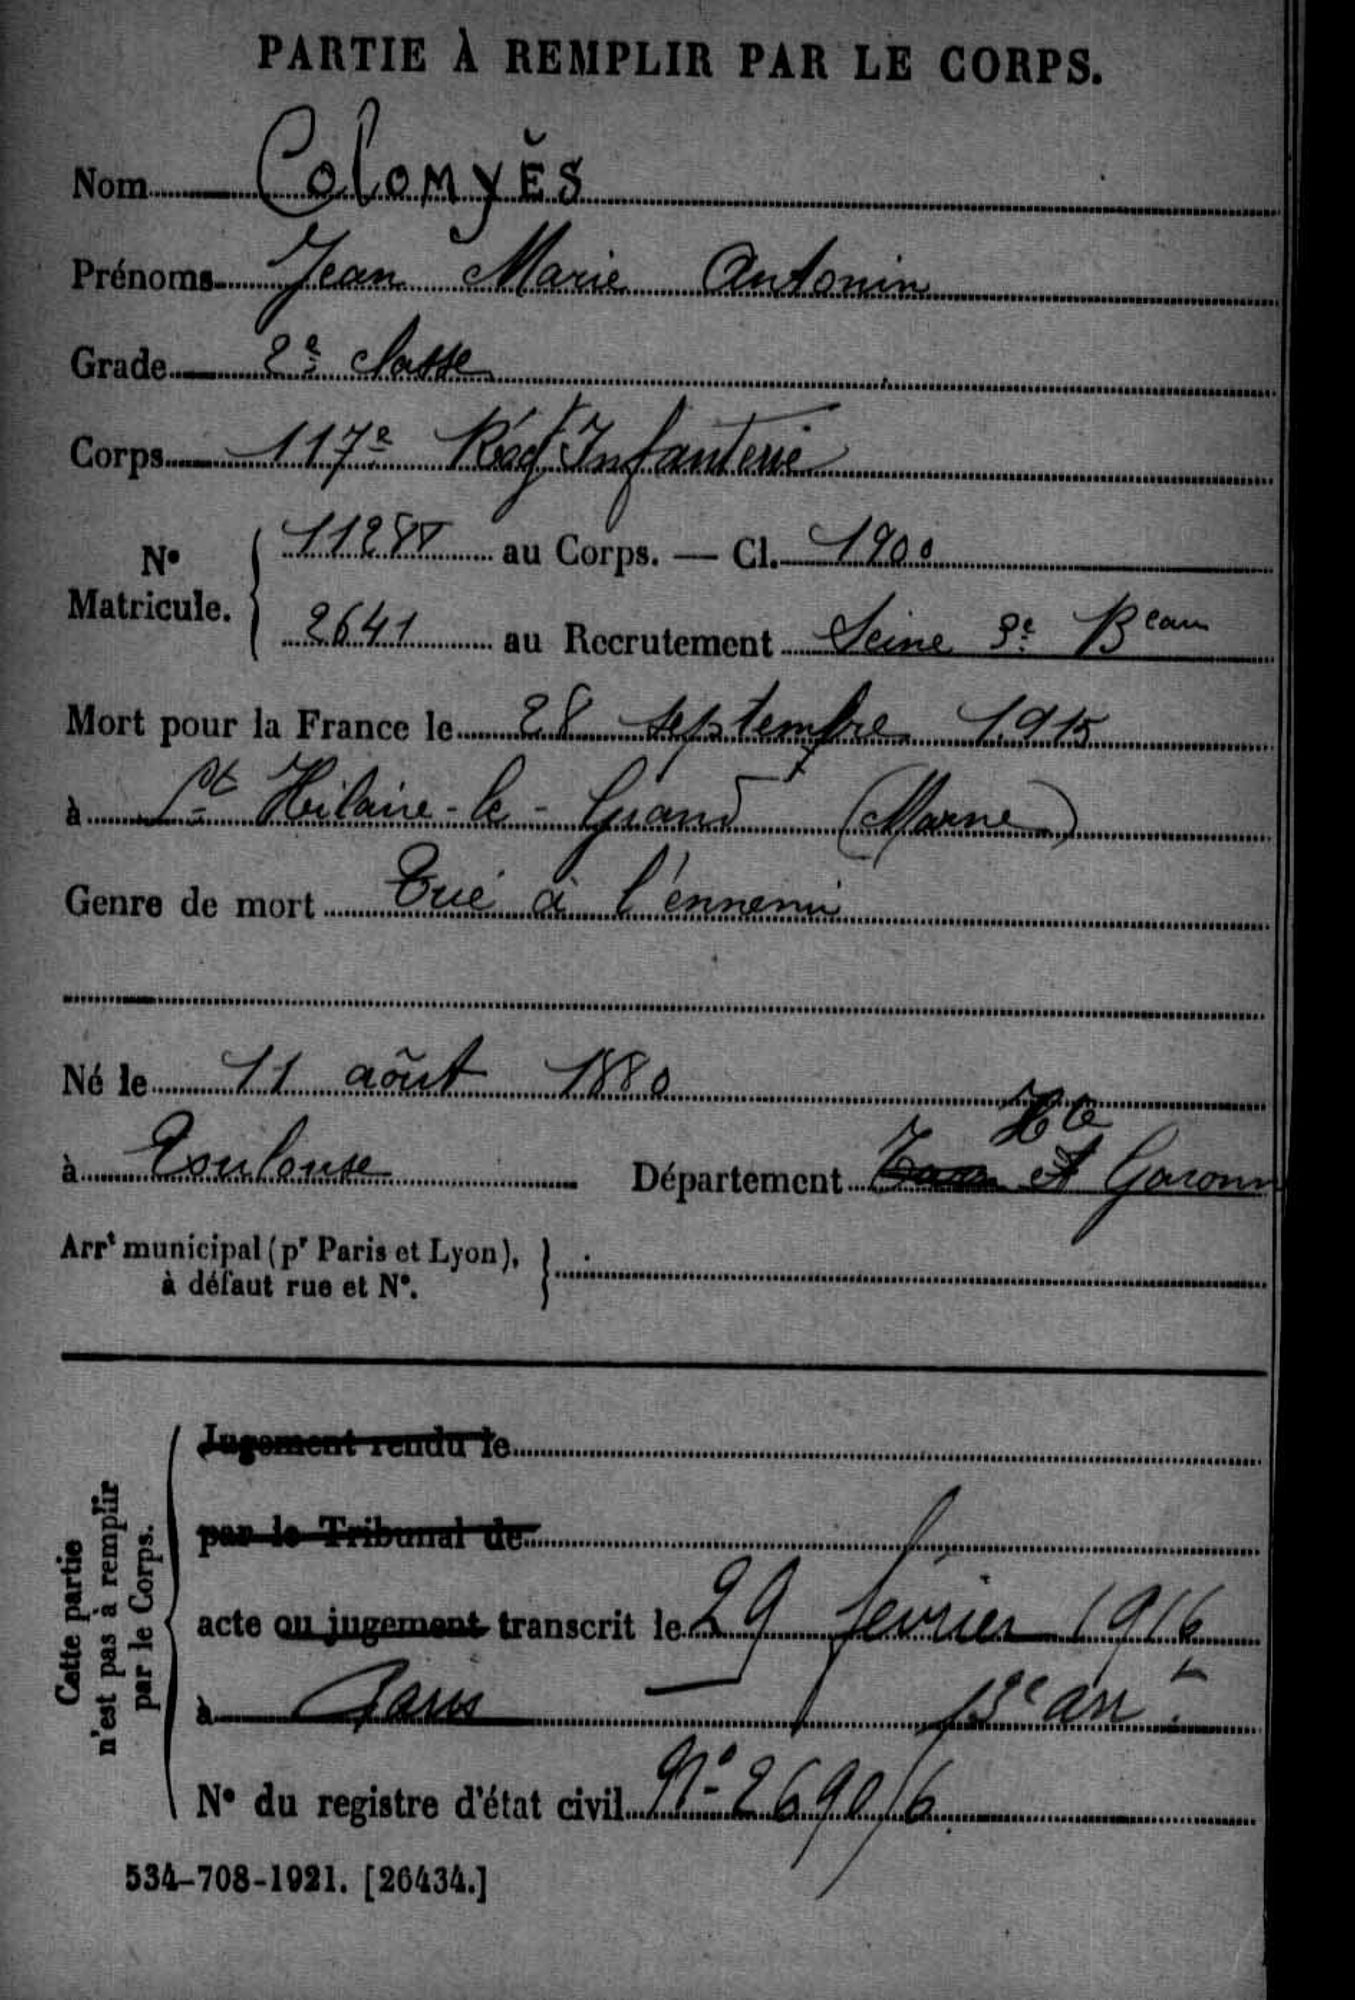 PARTIE À REMPLIR PAR LE CORPS.
Nom Colomyès
Prénoms Jean Marie Antonin
Grade 2e classe
Corps 117e Régt Infanterie
No Matricule. 11288 au Corps. — Cl. 1900
2641 au Recrutement Seine 3e Beau
Mort pour la France le 28 septembre 1915
à St Hilaire-le-Grand (Marne)
Genre de mort Tué à l'ennemi
Né le 11 août 1880
Hte
à Toulouse Département Tarn et Garonn
Arrt municipal (pr Paris et Lyon),
à défaut rue et No.
Cette partie
n'est pas à remplir
par le Corps.
Jugement rendu le
par le Tribunal de
acte ou jugement transcrit le 29 février 1916
à Paris 13e arrt
No du registre d'état civil No 2690/6
534-708-1921. [26434.]